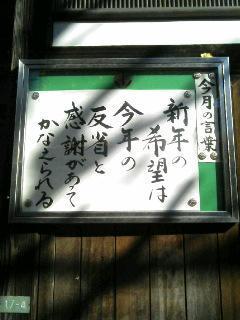 今月の言葉
新年の
希望は
今年の
反省と
感謝があって
かなえられる
17-4